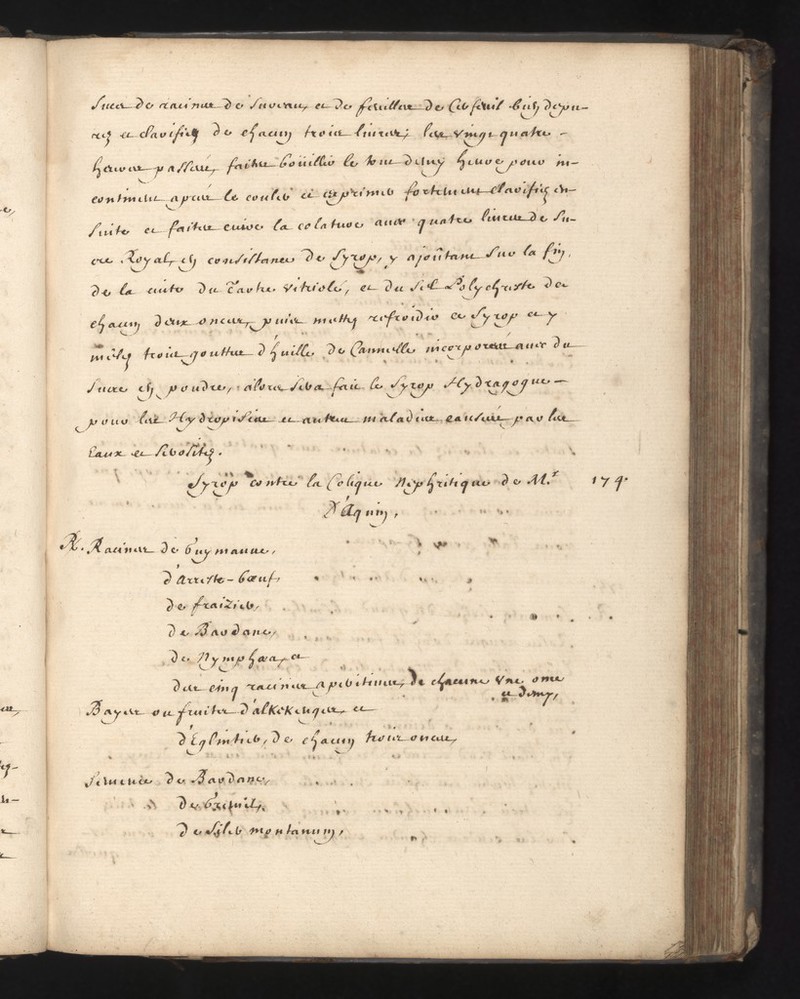 Sucs de racines de Sureau, et de feuilles de Cerfeuil bien depu-
rez et clarifiez de chacun trois livres; les vingt quatre -
heures passées, faites boüillir le tout demy heure pour in-
continent aprés le couler et exprimer fortement clarifiez en-
Suite et faites cuire la colature avec quatre livres de Su-
cre Royal, en consistance de Syrop, y ajoûtant Sur la fin,
de la cuite du Tartre vitriolé, et du Sel Polychreste de
chacun deux onces, puis mettez refroidir ce Syrop et y
mêlez trois gouttes d'huille de Cannelle incorporées avec du
Sucre en poudre, alors Sera fait le Syrop Hydragogue -
pour les Hydropisies et autres maladies causées par les
Eaux et Serositez.
Syrop contre la Colique Nephritique de M.r 174.
D'Aquin,
R. Racines de Guymauve,
d'Arreste-boeuf,
de fraizier,
de Bardane,
de Nymphæa, et
des cinq racines aperitives, de chacune vne once
et demy,
Bayes ou fruits d'alkekenges, et
d'Eglintier, de chacun trois onces,
Semence de Bardane,
de Gremil,
de Siler montanum,